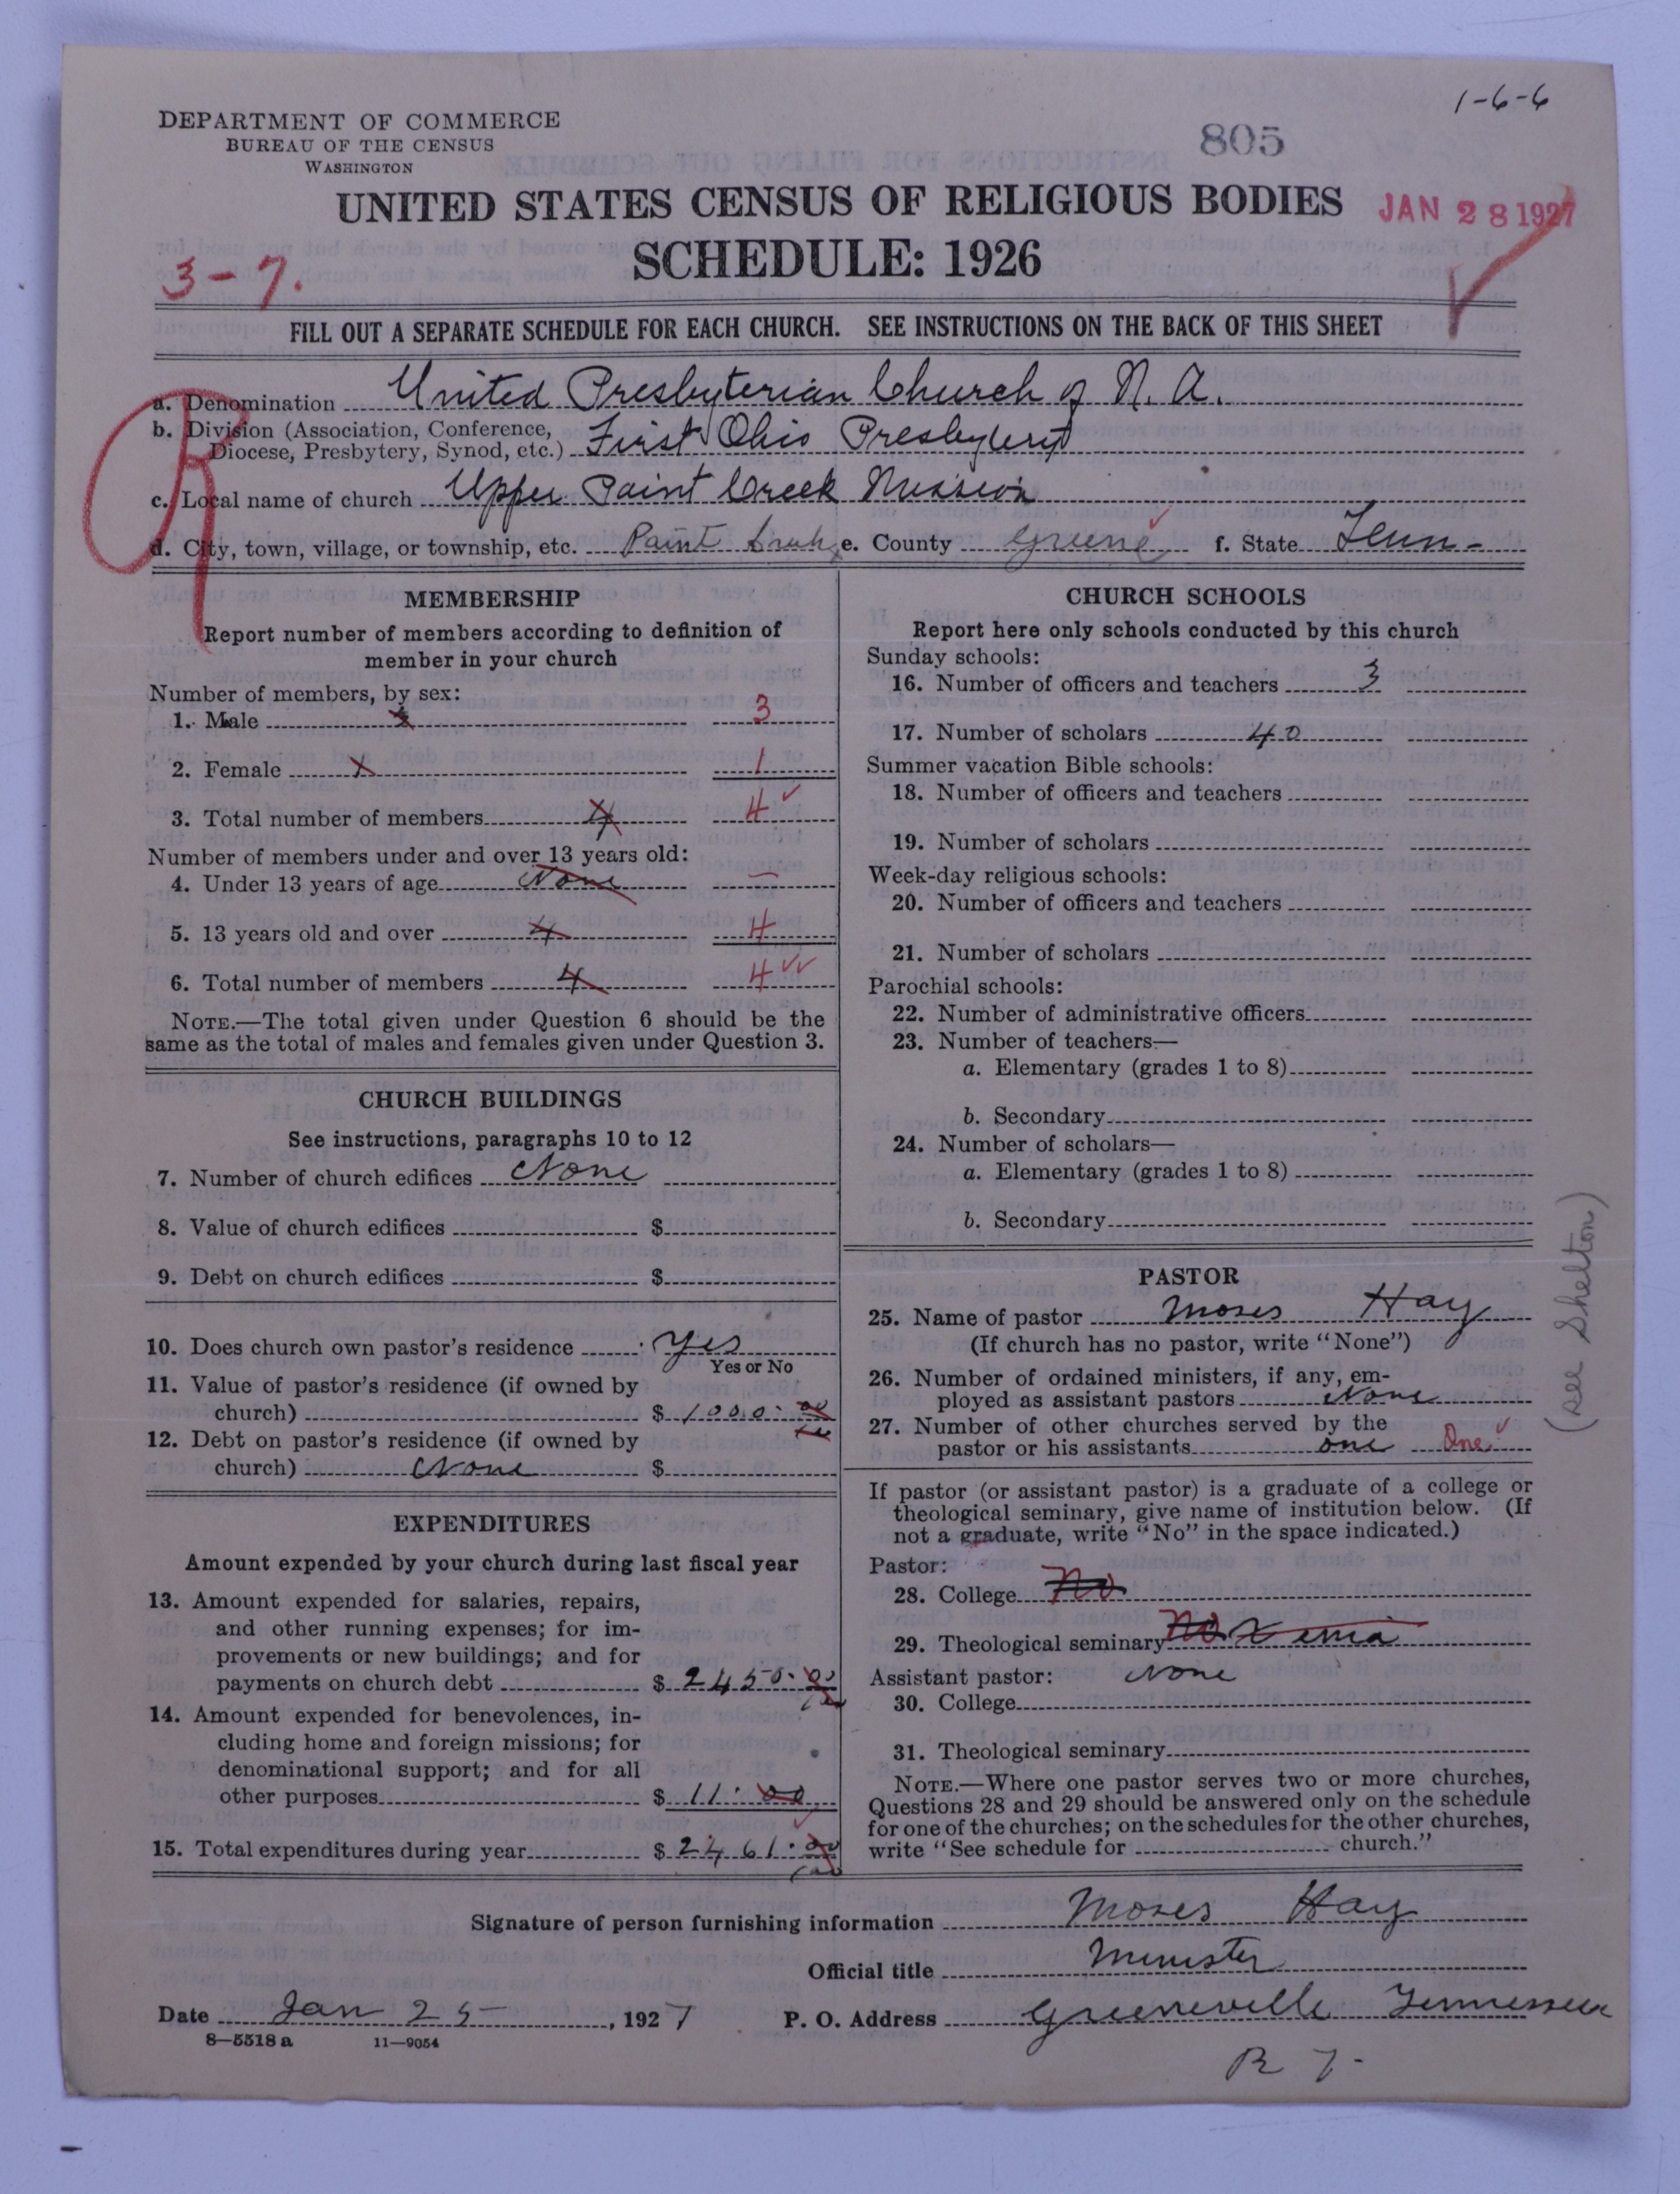 1-6-6
DEPARTMENT OF COMMERCE
BUREAU OF THE CENSUS
WASHINGTON
805
UNITED STATES CENSUS OF RELIGIOUS BODIES
JAN 28 1927
SCHEDULE: 1926
3-7.
FILL OUT A SEPARATE SCHEDULE FOR EACH CHURCH. SEE INSTRUCTIONS ON THE BACK OF THIS SHEET
a. Denomination United Presbyterian Church of N. A.
b. Division (Association, Conference,
Diocese, Presbytery, Synod, etc.) First Ohio Presbytery
c. Local name of church Upper Paint Creek Mission
d. City, town, village, or township, etc. Paint e. County Greene f. State Tenn-
MEMBERSHIP
Report number of members according to definition of
member in your church
Number of members, by sex:
1. Male 3 3
2. Female 1 1
3. Total number of members 4 4
Number of members under and over 13 years old:
4. Under 13 years of age None —
5. 13 years old and over 4 4
6. Total number of members 4 4
NOTE.—The total given under Question 6 should be the
same as the total of males and females given under Question 3.
CHURCH BUILDINGS
See instructions, paragraphs 10 to 12
7. Number of church edifices None
8. Value of church edifices $
9. Debt on church edifices $
10. Does church own pastor's residence yes
Yes or No
11. Value of pastor's residence (if owned by
church) $ 1000.00
12. Debt on pastor's residence (if owned by
church) None $
EXPENDITURES
Amount expended by your church during last fiscal year
13. Amount expended for salaries, repairs,
and other running expenses; for im-
provements or new buildings; and for
payments on church debt $ 2450.00
14. Amount expended for benevolences, in-
cluding home and foreign missions; for
denominational support; and for all
other purposes $ 11.00
15. Total expenditures during year $ 2461.00
CHURCH SCHOOLS
Report here only schools conducted by this church
Sunday schools:
16. Number of officers and teachers 3
17. Number of scholars 40
Summer vacation Bible schools:
18. Number of officers and teachers
19. Number of scholars
Week-day religious schools:
20. Number of officers and teachers
21. Number of scholars
Parochial schools:
22. Number of administrative officers
23. Number of teachers—
a. Elementary (grades 1 to 8)
b. Secondary
24. Number of scholars—
a. Elementary (grades 1 to 8)
b. Secondary
PASTOR
25. Name of pastor Moses Hay
(If church has no pastor, write "None")
26. Number of ordained ministers, if any, em-
ployed as assistant pastors None
27. Number of other churches served by the
pastor or his assistants one One
(see Shelton)
If pastor (or assistant pastor) is a graduate of a college or
theological seminary, give name of institution below. (If
not a graduate, write "No" in the space indicated.)
Pastor:
28. College No
29. Theological seminary No Xenia
Assistant pastor: None
30. College
31. Theological seminary
NOTE.—Where one pastor serves two or more churches,
Questions 28 and 29 should be answered only on the schedule
for one of the churches; on the schedules for the other churches,
write "See schedule for church."
Signature of person furnishing information Moses Hay
Official title Minister
Date Jan 25, 1927 P. O. Address Greeneville Tennessee
8—5518 a 11—9054
R 7-